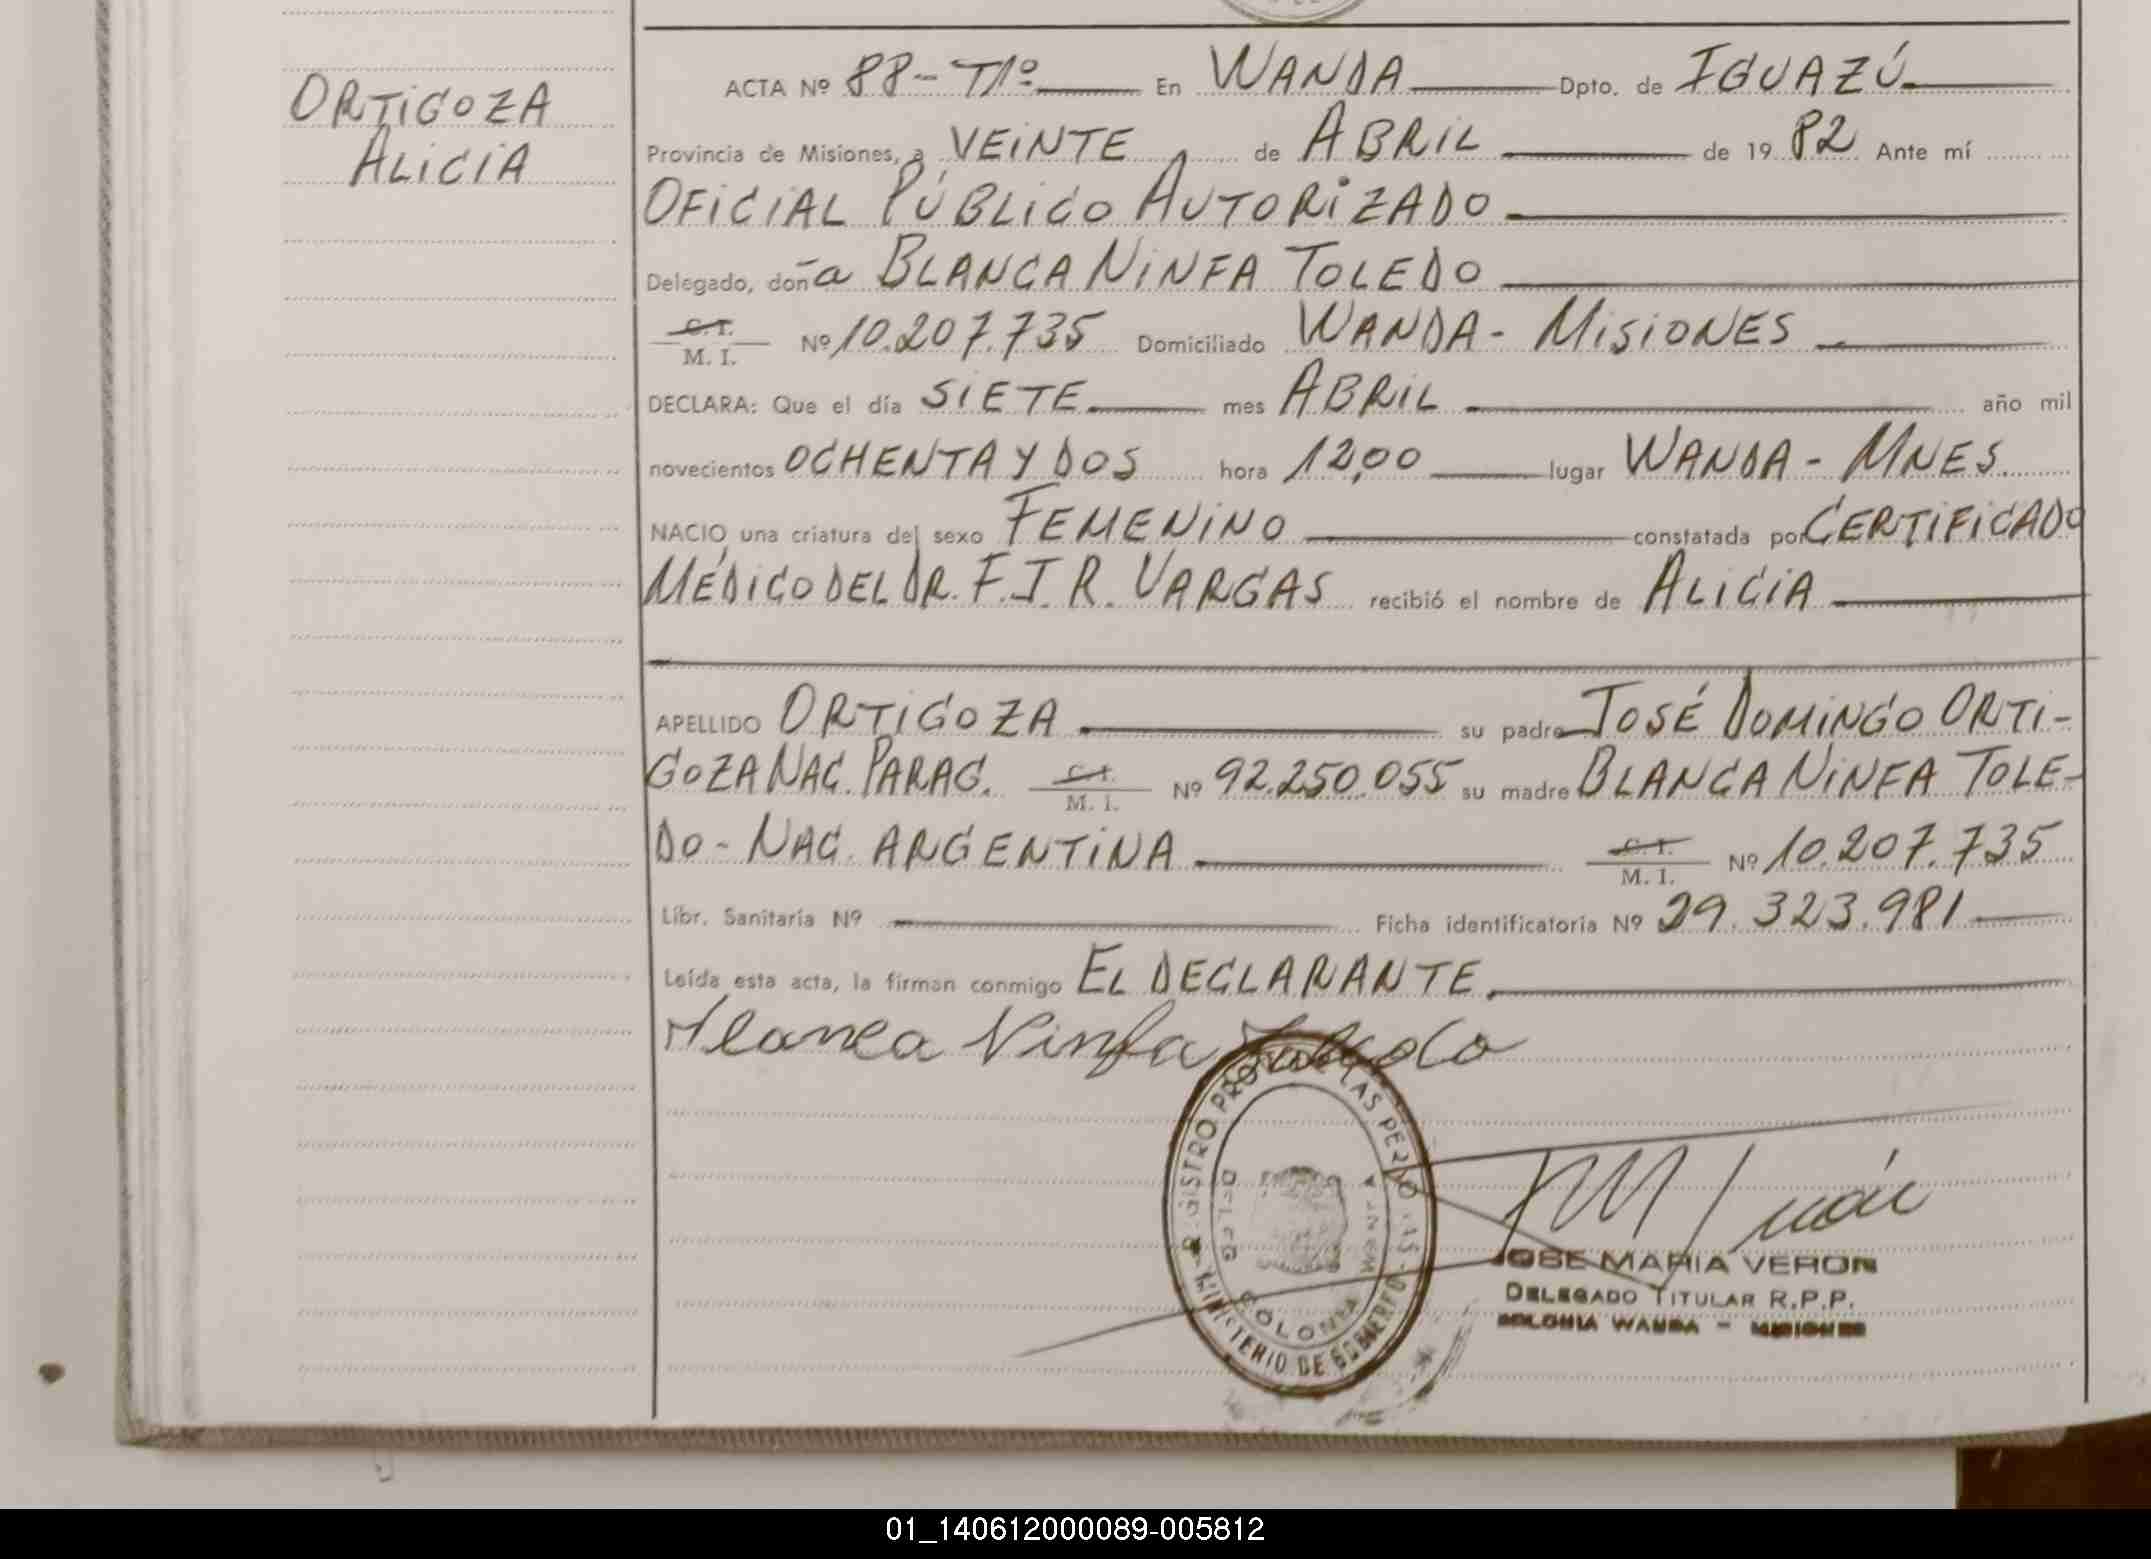 ORTIGOZA
ALICIA
ACTA Nº 88-T1º En WANDA Dpto. de IGUAZÚ
Provincia de Misiones, a VEINTE de ABRIL de 19 82 Ante mí
OFICIAL PÚBLICO AUTORIZADO
Delegado, doña BLANCA NINFA TOLEDO
C. I.
M. I. Nº 10.207.735 Domiciliado WANDA - MISIONES
DECLARA: Que el día SIETE mes ABRIL año mil
novecientos OCHENTA Y DOS hora 12,00 lugar WANDA - MNES.
NACIO una criatura del sexo FEMENINO constatada por CERTIFICADO
MÉDICO DEL DR. F.J.R. VARGAS recibió el nombre de ALICIA
APELLIDO ORTIGOZA su padre JOSÉ DOMINGO ORTI-
GOZA NAC. PARAG. C. I. M. I. Nº 92.250.055 su madre BLANCA NINFA TOLE-
DO - NAC. ARGENTINA C. I. M. I. Nº 10.207.735
Libr. Sanitaria Nº Ficha identificatoria Nº 29.323.981
Leída esta acta, la firman conmigo EL DECLARANTE.
Blanca Ninfa Toledo
REGISTRO PROV. DE LAS PERSONAS
MINISTERIO DE GOBIERNO
COLONIA WANDA
JOSE MARIA VERON
DELEGADO TITULAR R.P.P.
COLONIA WANDA - MISIONES
01_140612000089-005812